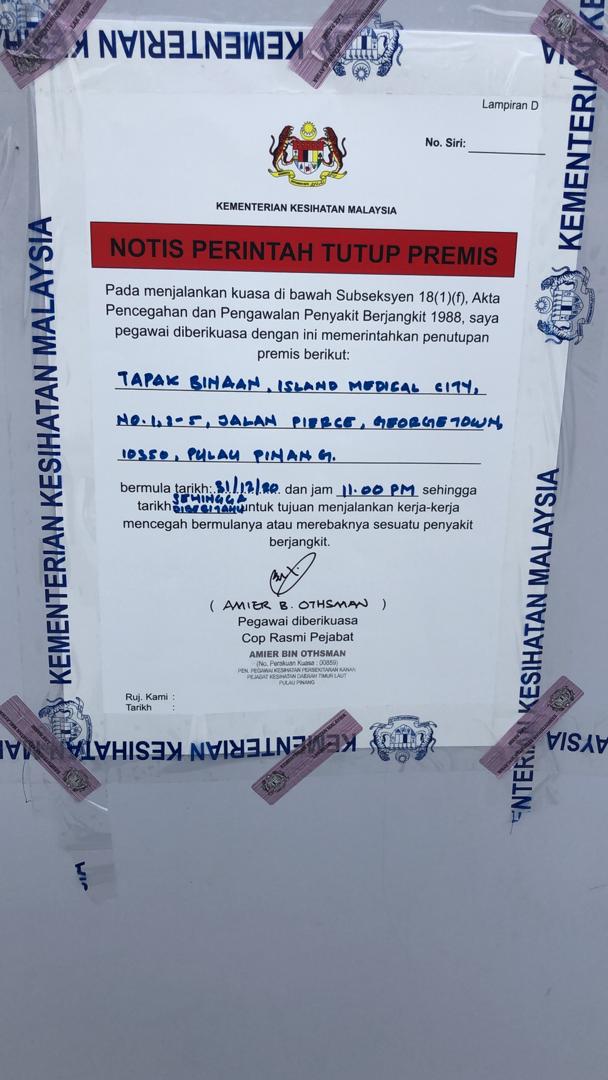 KEMENTERIAN KESIHATAN MALAYSIA
Lampiran D
No. Siri:
KEMENTERIAN KESIHATAN MALAYSIA
NOTIS PERINTAH TUTUP PREMIS
Pada menjalankan kuasa di bawah Subseksyen 18(1)(f), Akta
Pencegahan dan Pengawalan Penyakit Berjangkit 1988, saya
pegawai diberikuasa dengan ini memerintahkan penutupan
premis berikut:
TAPAK BINAAN, ISLAND MEDICAL CITY,
NO.1,3-5, JALAN PIERCE, GEORGETOWN,
10350, PULAU PINANG.
bermula tarikh: 31/12/20 dan jam 11.00 PM sehingga
SEHINGGA
tarikh DIBERITAHU untuk tujuan menjalankan kerja-kerja
mencegah bermulanya atau merebaknya sesuatu penyakit
berjangkit.
( AMIER B. OTHSMAN )
Pegawai diberikuasa
Cop Rasmi Pejabat
AMIER BIN OTHSMAN
(No. Perakuan Kuasa : 00859)
PEN. PEGAWAI KESIHATAN PERSEKITARAN KANAN
PEJABAT KESIHATAN DAERAH TIMUR LAUT
PULAU PINANG
Ruj. Kami :
Tarikh :
KEMENTERIAN
KEMENTERIAN
KESIHATAN MALAYSIA
KEMENTERIAN KESIHATAN